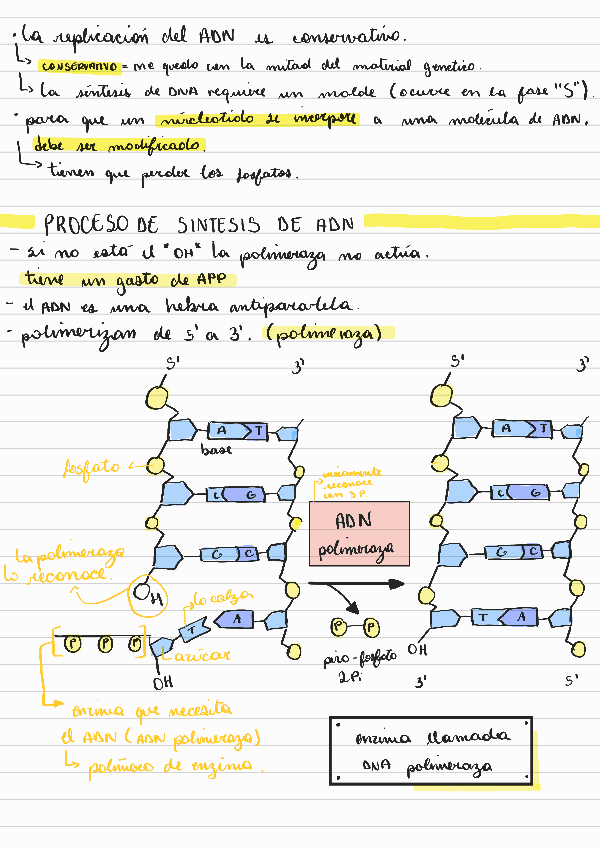 • La replicación del ADN es conservativo.
↳ CONSERVATIVO = me quedo con la mitad del material genetico.
↳ La síntesis de DNA requiere un molde (ocurre en la fase "S").
• para que un nucleotido se incorpore a una molécula de ADN,
debe ser modificado.
↳ tienen que perder los fosfatos.
PROCESO DE SINTESIS DE ADN
- si no está el "OH" la polimeraza no actúa.
tiene un gasto de APP
- el ADN es una hebra antiparalela.
- polimerizan de 5' a 3'. (polimeraza)
5' 3' 5' 3'
A T A T
base
fosfato
unicamente
reconoce
con 3 Pi
C G C G
ADN
polimeraza
La polimeraza
lo reconoce.
G C G C
OH
lo calza
T A T A
P P P
P P
azúcar
OH
OH
piro-fosfato
2Pi
3' 5'
enzima que necesita
el ADN (ADN polimeraza)
↳ polímero de enzima.
enzima llamada
DNA polimeraza